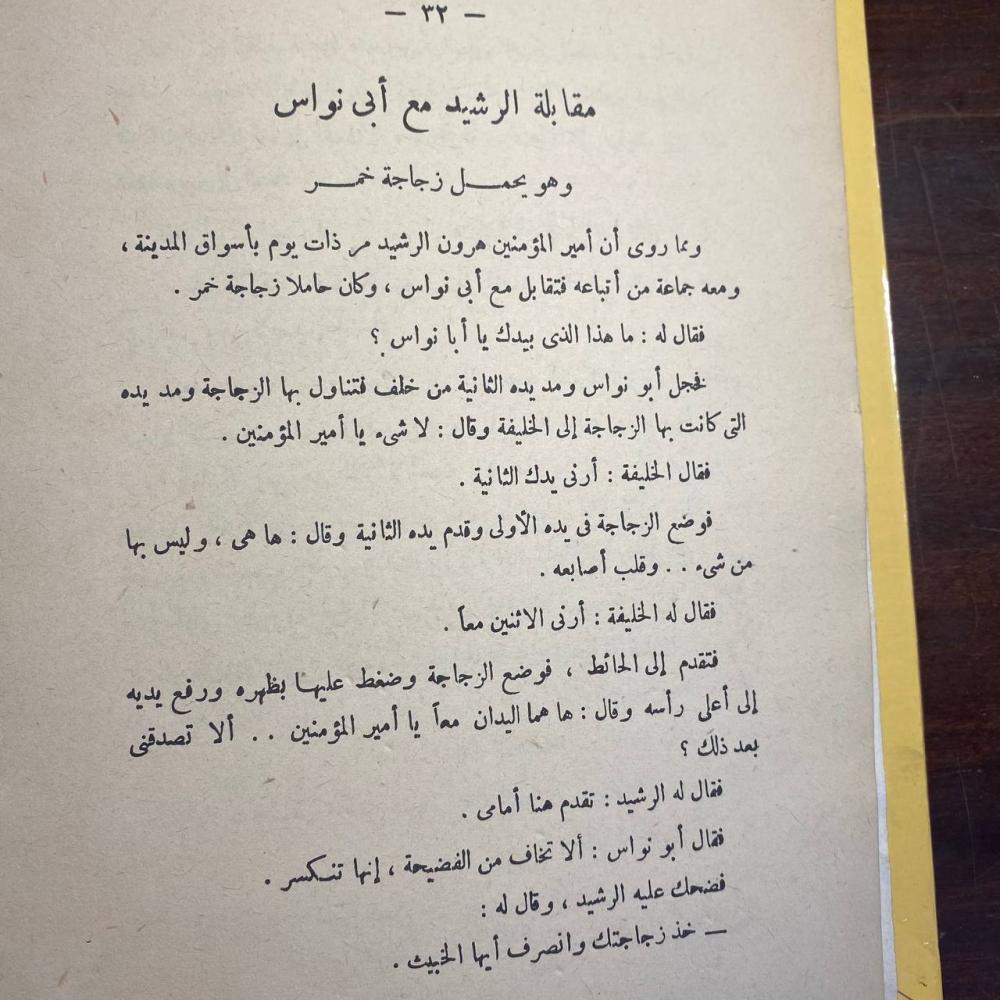 — ٣٢ —
مقابلة الرشيد مع أبى نواس
وهو يحمل زجاجة خمر
ومما روى أن أمير المؤمنين هرون الرشيد مر ذات يوم بأسواق المدينة ،
ومعه جماعة من أتباعه فتقابل مع أبى نواس ، وكان حاملا زجاجة خمر .
فقال له : ما هذا الذى بيدك يا أبا نواس ؟
فخجل أبو نواس ومد يده الثانية من خلف فتناول بها الزجاجة ومد يده
التى كانت بها الزجاجة إلى الخليفة وقال : لا شىء يا أمير المؤمنين .
فقال الخليفة : أرنى يدك الثانية .
فوضع الزجاجة فى يده الأولى وقدم يده الثانية وقال : ها هى ، وليس بها
من شىء . . وقلب أصابعه .
فقال له الخليفة : أرنى الاثنين معاً .
فتقدم إلى الحائط ، فوضع الزجاجة وضغط عليها بظهره ورفع يديه
إلى أعلى رأسه وقال : ها هما اليدان معاً يا أمير المؤمنين . . ألا تصدقنى
بعد ذلك ؟
فقال له الرشيد : تقدم هنا أمامى .
فقال أبو نواس : ألا تخاف من الفضيحة ، إنها تنكسر .
فضحك عليه الرشيد ، وقال له :
— خذ زجاجتك وانصرف أيها الخبيث .